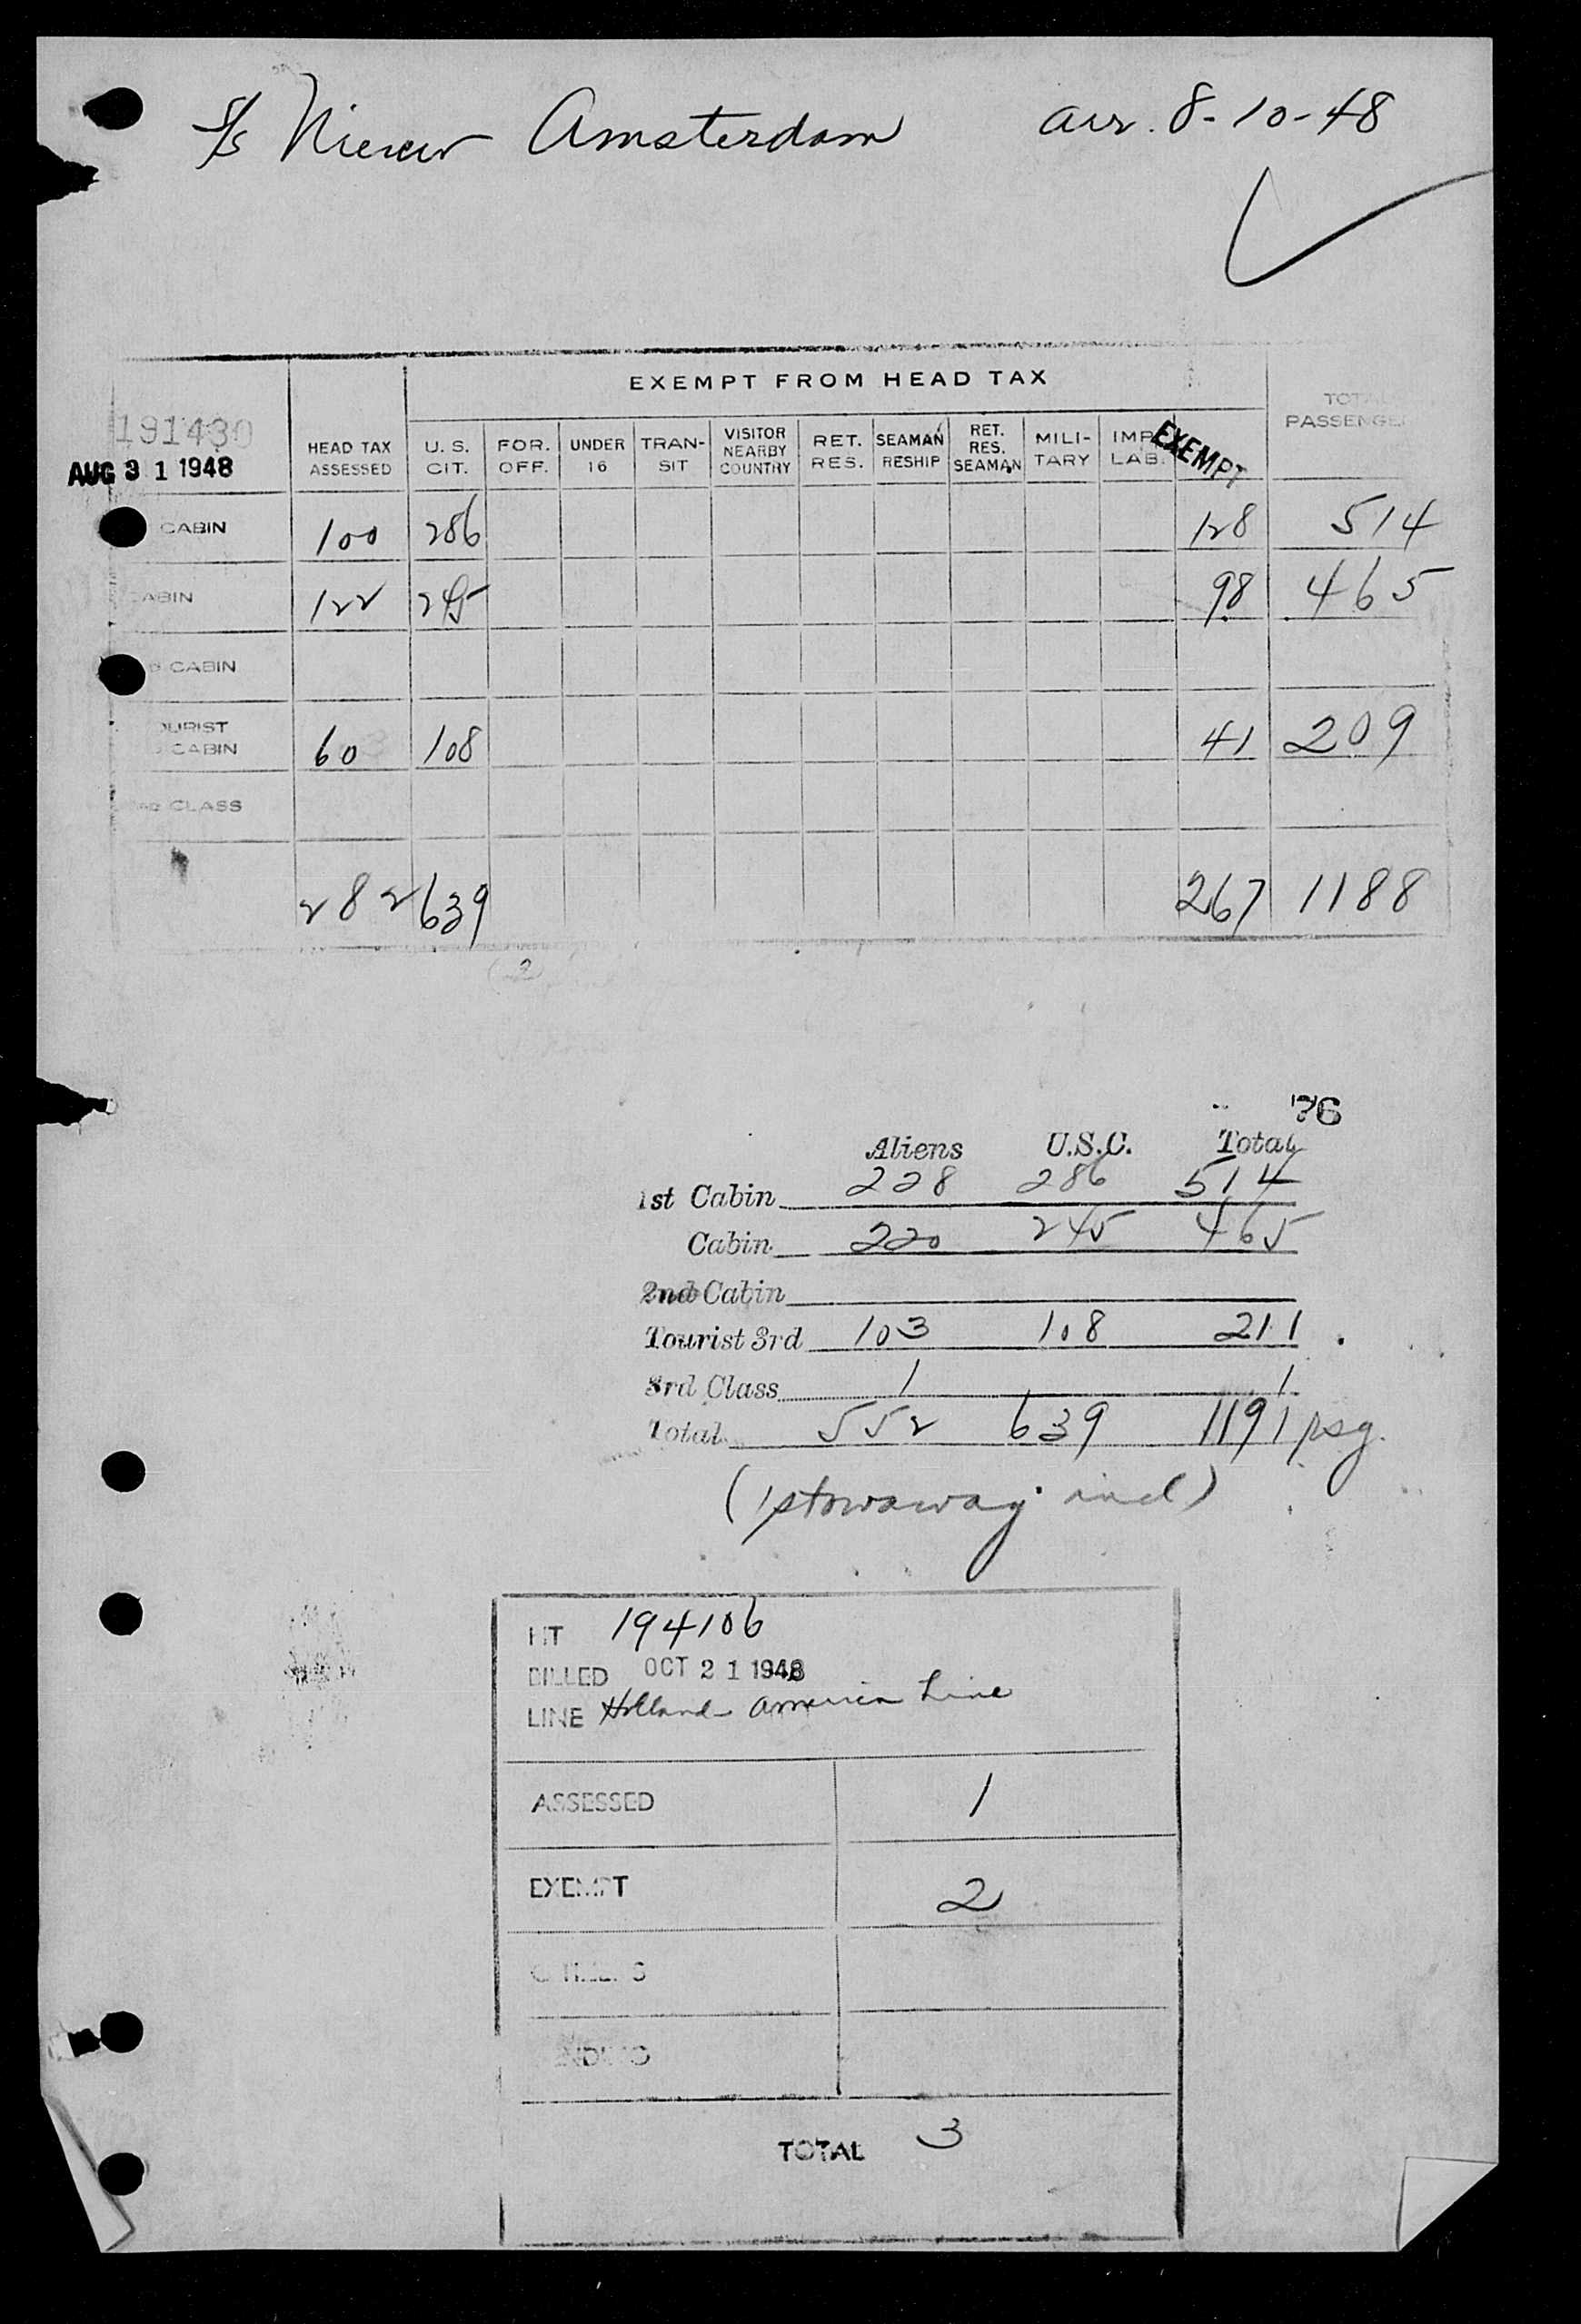 S/S Nieuw Amsterdam arr. 8-10-48
EXEMPT FROM HEAD TAX
191430
AUG 31 1948
HEAD TAX ASSESSED
U. S. CIT.
FOR. OFF.
UNDER 16
TRAN- SIT
VISITOR NEARBY COUNTRY
RET. RES.
SEAMAN RESHIP
RET. RES. SEAMAN
MILI- TARY
IMP. LAB.
EXEMPT
TOTAL PASSENGE
CABIN 100 286 128 514
CABIN 122 245 98 465
CABIN
OURIST CABIN 60 108 41 209
CLASS
282 639 267 1188
(2)
Aliens U.S.C. Total
1st Cabin 228 286 514
Cabin 220 245 465
2nd Cabin
Tourist 3rd 103 108 211
3rd Class 1 1
Total 552 639 1191 psg.
(1 stowaway incl)
HT 194106
BILLED OCT 21 1948
LINE Holland America Line
ASSESSED 1
EXEMPT 2
TOTAL 3